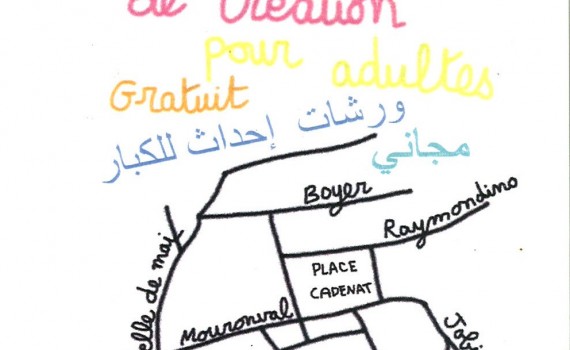 de création
pour adultes
Gratuit
ورشات إحداث للكبار
مجاني
Boyer
Raymondino
PLACE
CADENAT
elle de mai
Mouronval